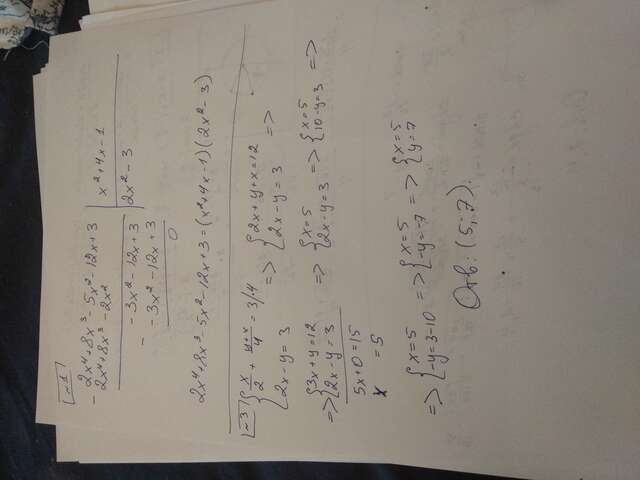 №1
- 2x⁴+8x³-5x²-12x+3 | x²+4x-1
2x⁴+8x³-2x² | 2x²-3
- -3x²-12x+3
-3x²-12x+3
0
2x⁴+8x³-5x²-12x+3=(x²+4x-1)(2x²-3)
№3 { x/2 + (y+x)/4 = 3/·4 => { 2x+y+x=12 =>
{ 2x-y=3 { 2x-y=3
=> { 3x+y=12 => { x=5 => { x=5 =>
{ 2x-y=3 { 2x-y=3 { 10-y=3
5x+0=15
x =5
=> { x=5 => { x=5 => { x=5
{ -y=3-10 { -y=-7 { y=7
Отв: (5; 7).